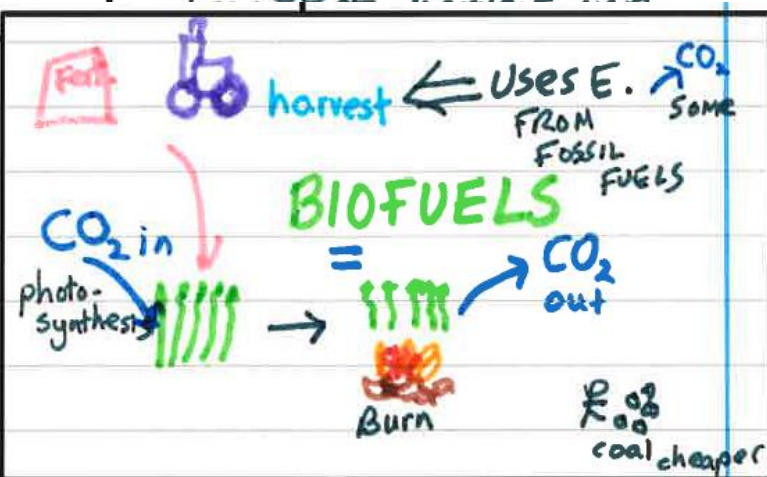 Fert.
harvest
uses E.
FROM
FOSSIL
FUELS
CO₂
some
BIOFUELS
=
CO₂ in
photo-
synthesis
CO₂
out
Burn
£
coal cheaper